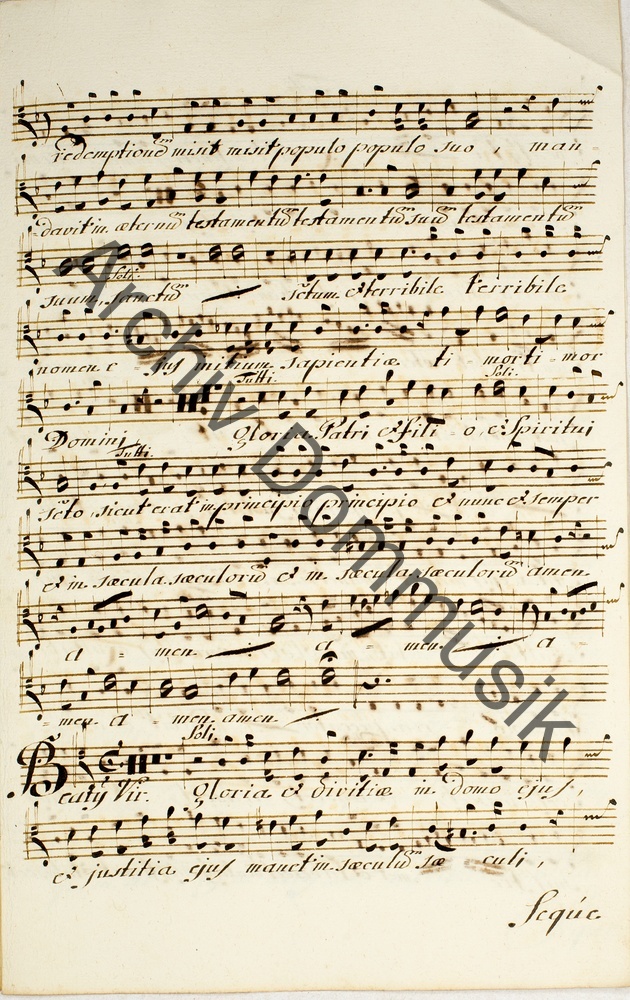 redemptionem misit misit populo populo suo, man-
davit in æternum testamentum testamentum suum testamentum
Soli.
suum, Sanctum sctum et terribile terribile
nomen e-jus initium sapientiæ ti-mor ti-mor
Tutti. Soli.
Domini Gloria Patri et fili-o et Spiritui
Tutti.
scto sicut erat in principio principio et nunc et semper
et in sæcula sæculorum et in sæcula sæculorum amen
a-men a-men a
-men a-men amen
Soli.
Beatus Vir. Gloria et divitiæ in domo ejus,
et justitia ejus manet in sæculum sæ culi,
Seque
Archiv Dommusik